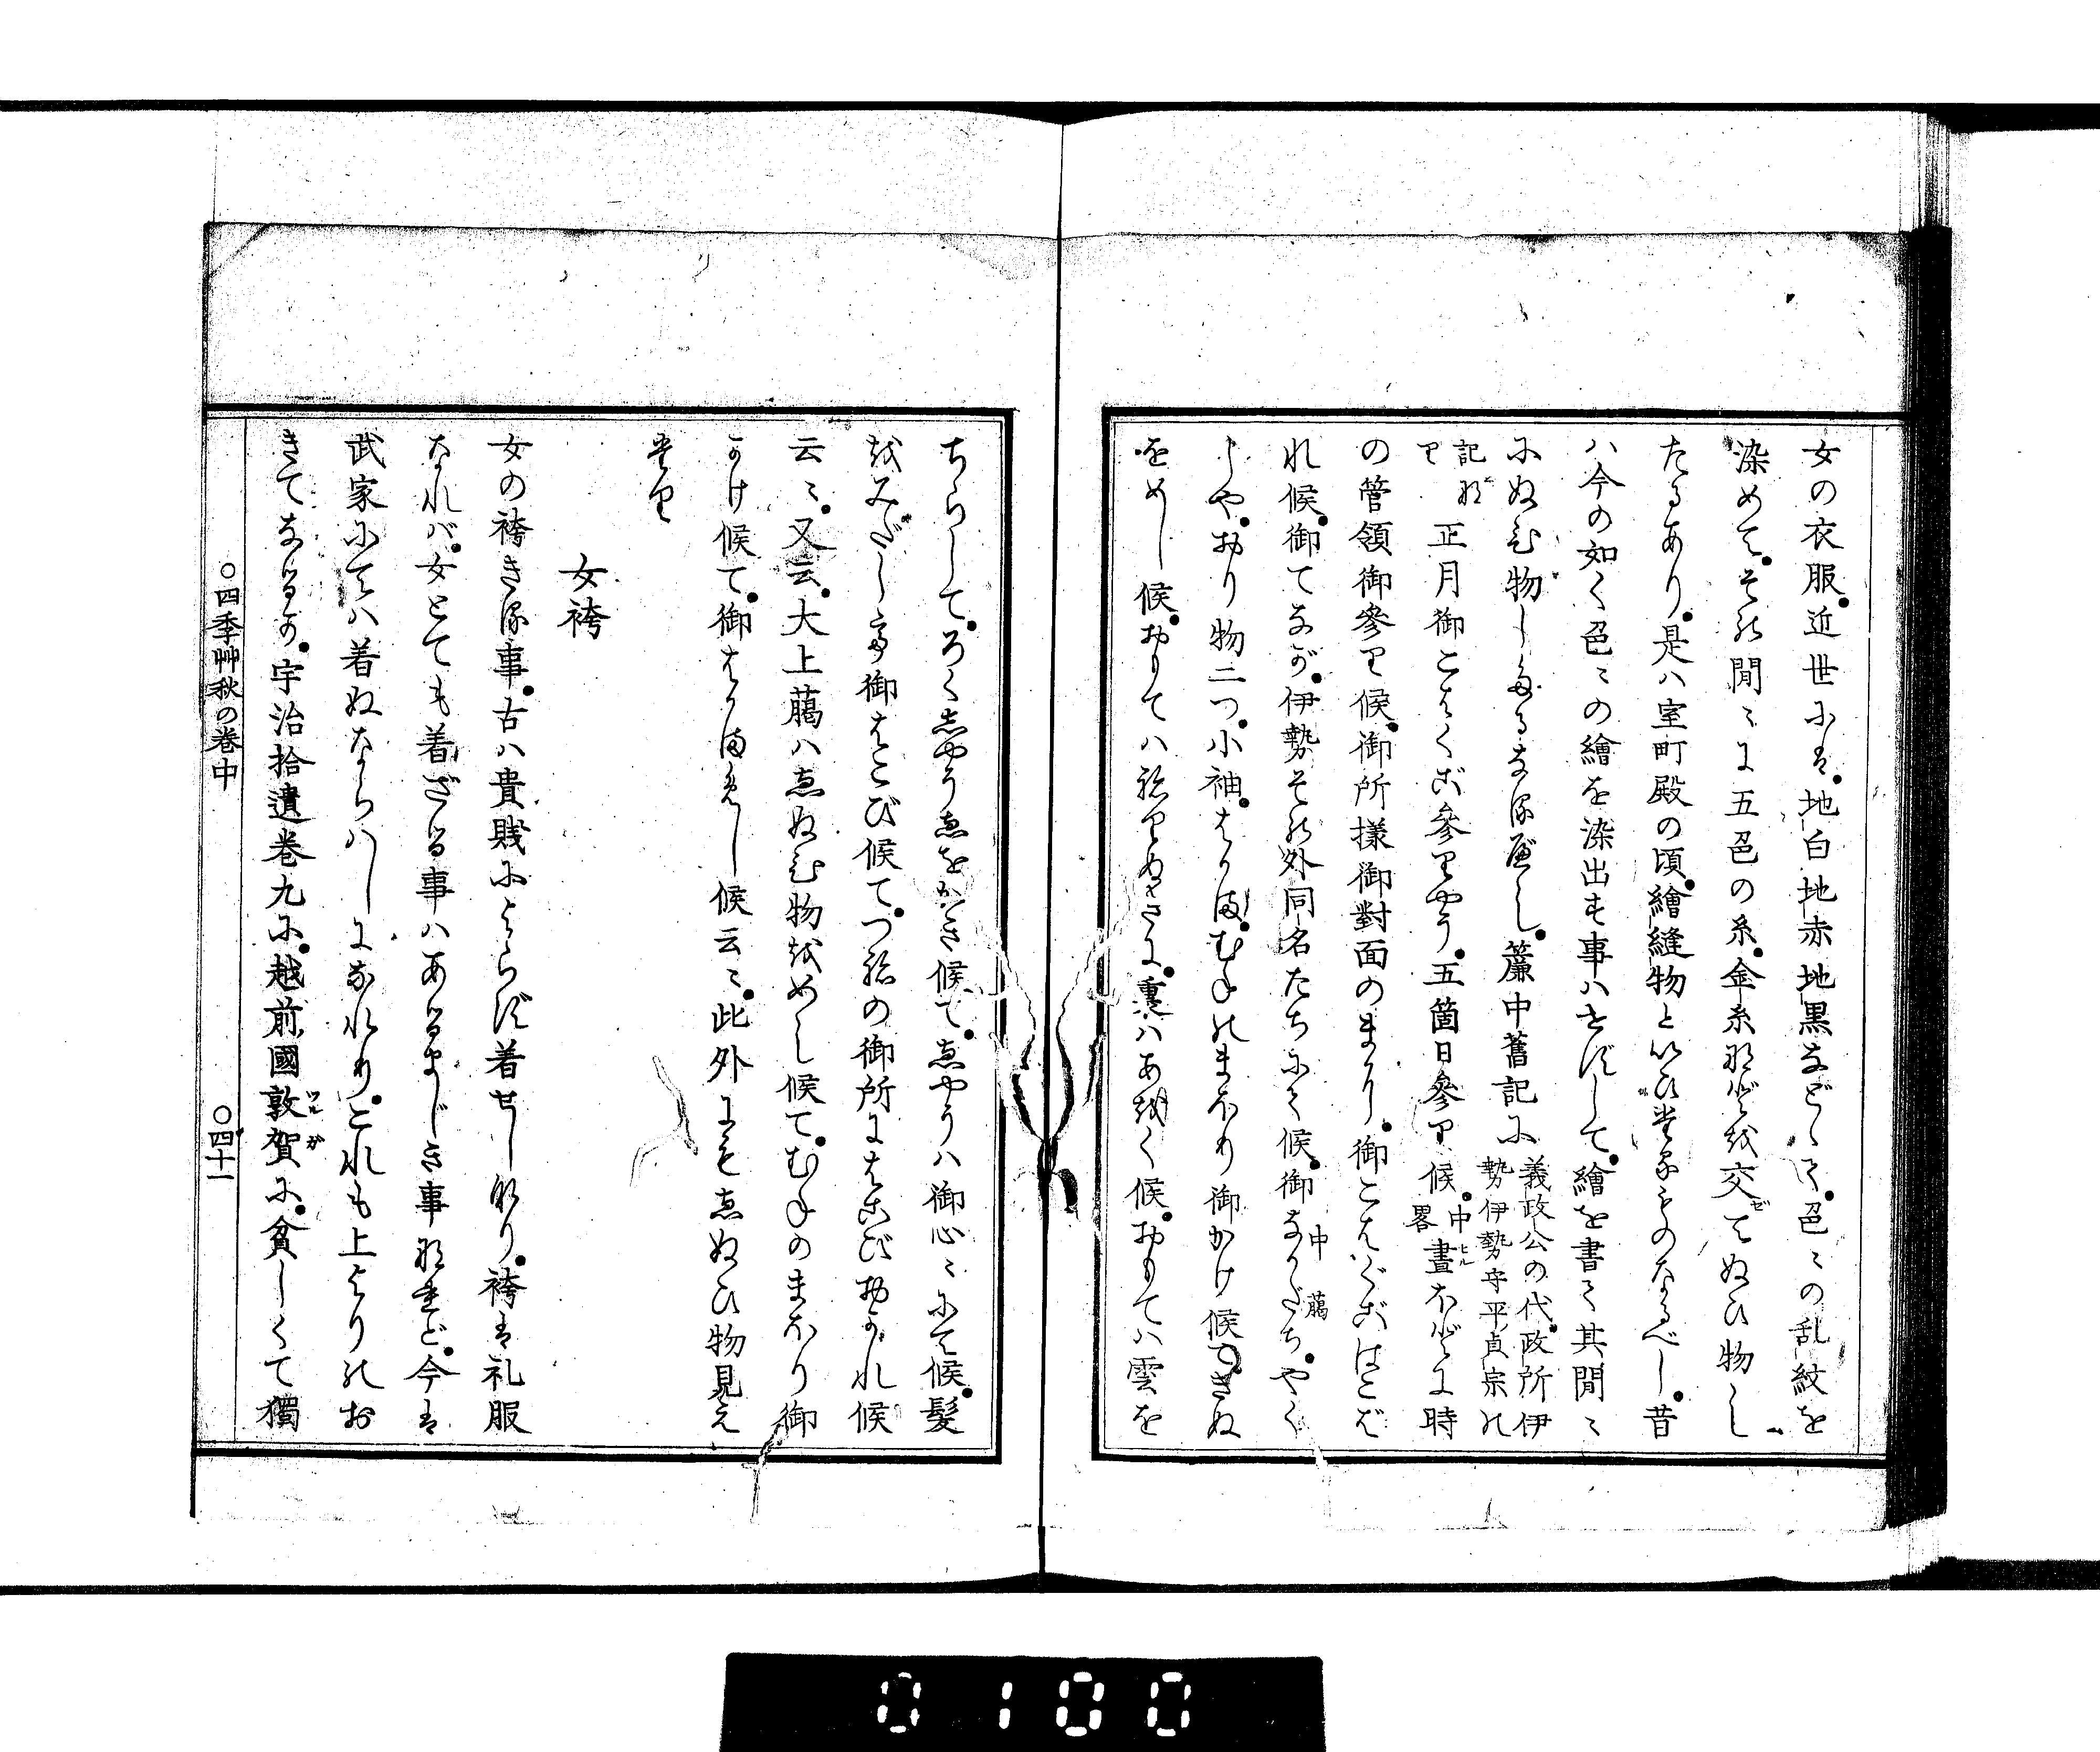 女の衣服近世は地白地赤地黒などゝて色〻の乱紋を
染めてその間〻に五色の糸金糸などを交てぬひ物し
たるあり是ハ室町殿の頃繪縫物といひたるものなるべし昔
ハ今の如く色〻の繪を染出す事ハせずして繪を書て其間〻
にぬひ物したるなるべし簾中舊記に義政公の代政所伊
勢伊勢守平貞宗の
記な
り正月御こはくご參りやう五箇日參り候中
畧晝ほどに時
の管領御參り候御所様御對面のまゝり御こはくごはこば
れ候御てなが伊勢その外同名たちにて候御なかだちやく
中 﨟
しやおり物二つ小袖はかまむねのまほり御かけ候てきぬ
をめし候おもてハねりぬきに裏ハあをく候おもてハ雲を
ちらしてろくしやうゑをかき候てゑやうハ御心〻にて候髪
をみだし候御はこび候てつねの御所にはこびおかれ候
云〻又云大上﨟ハゑぬひ物をめし候てむねのまほり御
かけ候て御はかまめし候云〻此外にもゑぬひ物見え
たり
女袴
女の袴きる事古ハ貴賎によらず着せしなり袴は礼服
なれバ女とても着ざる事ハあるまじき事なれど今は
武家にてハ着ぬならハしになれりこれも上よりのお
きてなるか宇治拾遺巻九に越前國敦賀に貧しくて獨
ツル ガ
○四季艸秋の巻中
○四十一